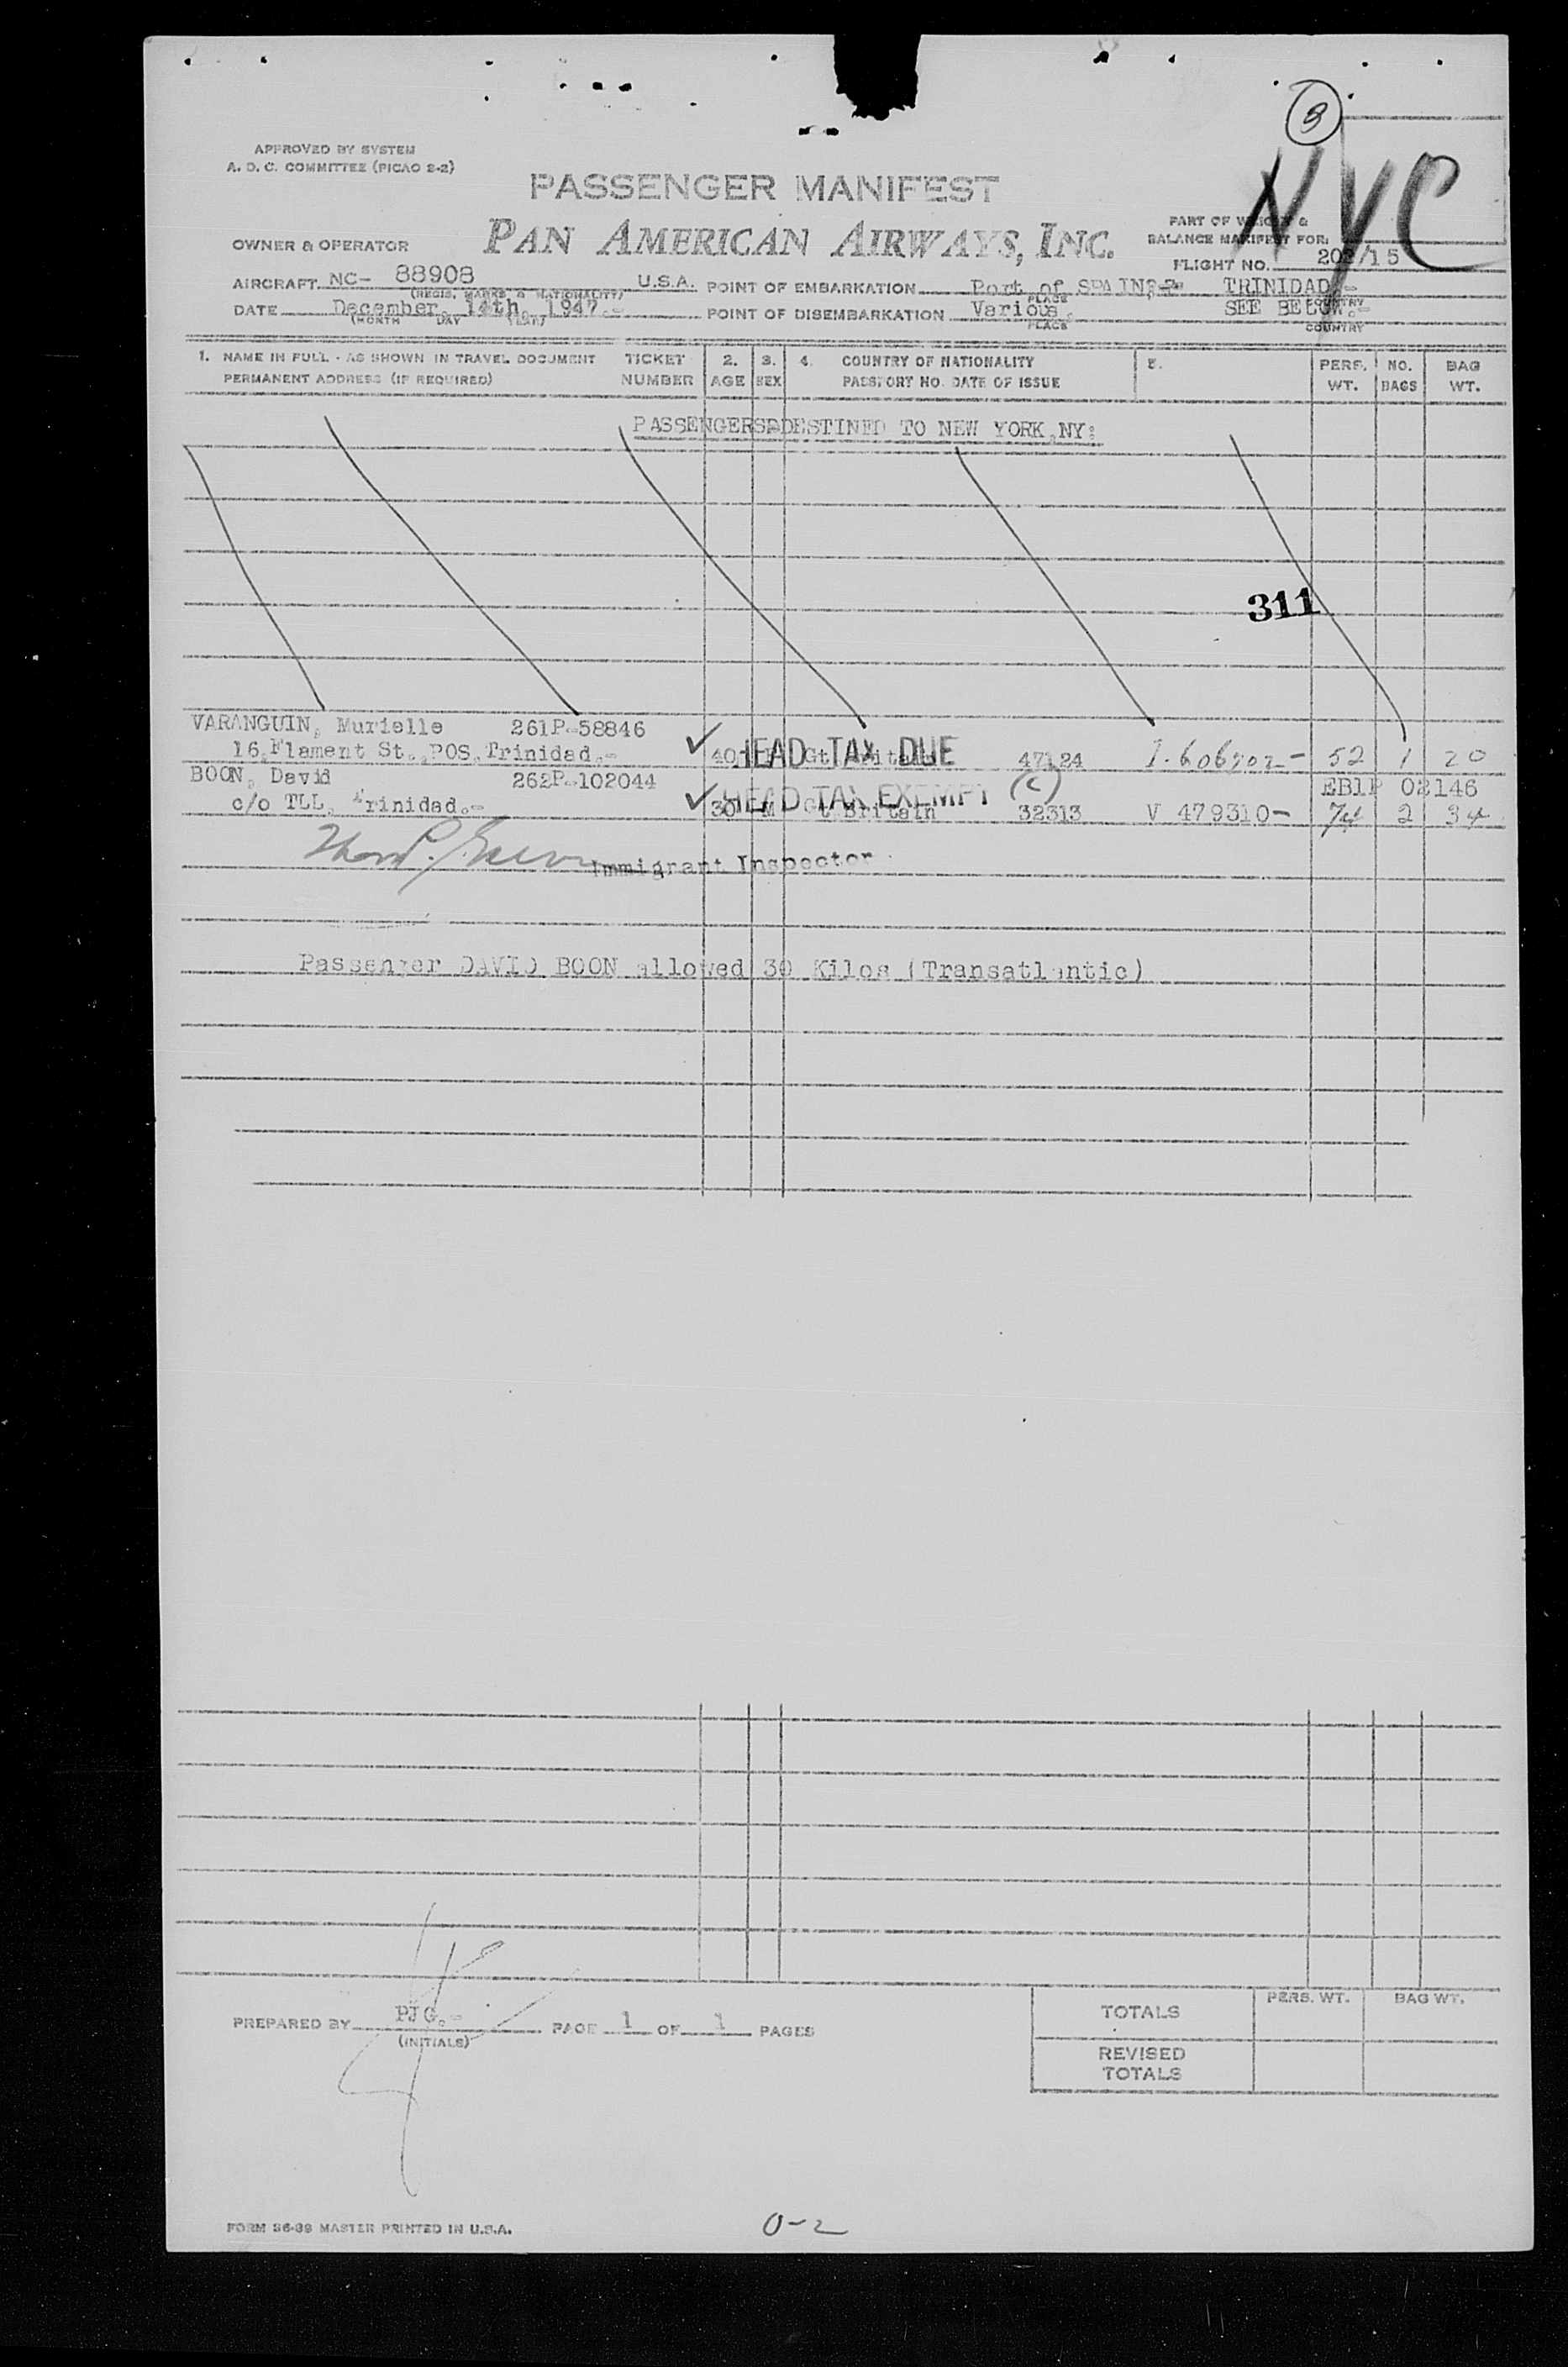 3
NYC
APPROVED BY SYSTEM
A. D. C. COMMITTEE (PICAO S-2)
PASSENGER MANIFEST
PAN AMERICAN AIRWAYS, INC.
PART OF WEIGHT &
BALANCE MANIFEST FOR:
OWNER & OPERATOR
FLIGHT NO. 202/15
AIRCRAFT NC- 88908 U.S.A. POINT OF EMBARKATION Port of SPAIN, TRINIDAD.-
(REGIS. MARKS & NATIONALITY) PLACE COUNTRY
DATE December, 14th, 1947.- POINT OF DISEMBARKATION Various. SEE BELOW.-
(MONTH DAY YEAR) PLACE COUNTRY
1. NAME IN FULL - AS SHOWN IN TRAVEL DOCUMENT TICKET 2. 3. 4. COUNTRY OF NATIONALITY 5. PERS. NO. BAG
PERMANENT ADDRESS (IF REQUIRED) NUMBER AGE SEX PASSPORT NO. DATE OF ISSUE WT. BAGS WT.
PASSENGERS DESTINED TO NEW YORK,NY:
311
VARANGUIN, Murielle 261P-58846
HEAD TAX DUE
16,Flament St.,POS,Trinidad.- 40 Gt Britain 47124 I-606702- 52 1 20
BOON, David 262P-102044 EB1P 02146
HEAD TAX EXEMPT (c)
c/o TLL, Trinidad.- 30 M Gt Britain 32313 V 479310- 74 2 34
Immigrant Inspector
Passenger DAVID BOON allowed 30 Kilos (Transatlantic)
PREPARED BY PJG.- PAGE 1 OF 1 PAGES
(INITIALS)
PERS. WT. BAG WT.
TOTALS
REVISED
TOTALS
FORM 36-39 MASTER PRINTED IN U.S.A.
0-2